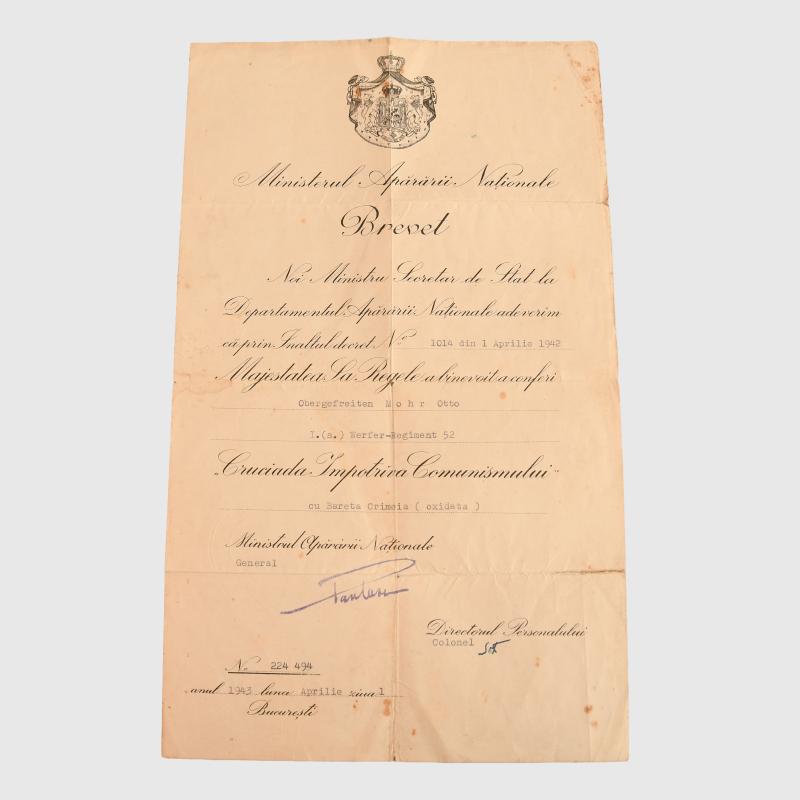 Ministerul Apărării Naționale
Brevet
Noi Ministru Secretar de Stat la
Departamentul Apărării Naționale adeverim
că prin Inaltul decret No 1014 din 1 Aprilie 1942
Majestatea Sa Regele a binevoit a conferi
Obergefreiten M o h r Otto
I.(a.) Werfer-Regiment 52
„Cruciada Impotriva Comunismului"
cu Bareta Crimeia ( oxidata )
Ministrul Apărării Naționale
General
Directorul Personalului
Colonel
No 224 494
anul 1943 luna Aprilie ziua 1
București